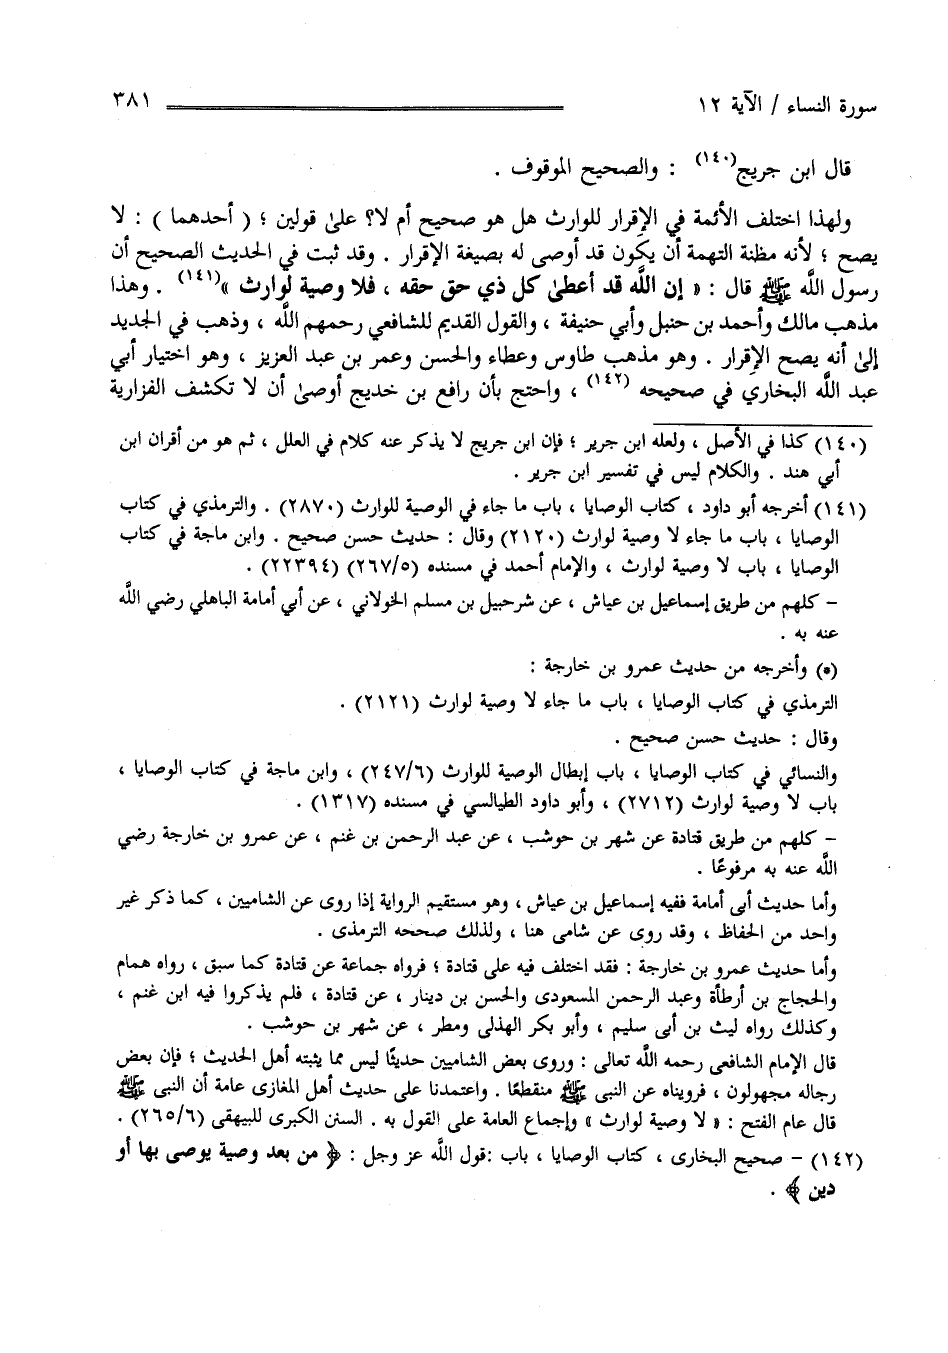 سورة النساء / الآية ١٢ ٣٨١
قال ابن جريج(١٤٠) : والصحيح الموقوف .
ولهذا اختلف الأئمة في الإقرار للوارث هل هو صحيح أم لا؟ على قولين ؛ ( أحدهما ) : لا
يصح ؛ لأنه مظنة التهمة أن يكون قد أوصى له بصيغة الإقرار . وقد ثبت في الحديث الصحيح أن
رسول الله ﷺ قال : « إن الله قد أعطى كل ذي حق حقه ، فلا وصية لوارث »(١٤١) . وهذا
مذهب مالك وأحمد بن حنبل وأبي حنيفة ، والقول القديم للشافعي رحمهم الله ، وذهب في الجديد
إلى أنه يصح الإقرار . وهو مذهب طاوس وعطاء والحسن وعمر بن عبد العزيز ، وهو اختيار أبي
عبد الله البخاري في صحيحه (١٤٢) ، واحتج بأن رافع بن خديج أوصى أن لا تكشف الفزارية
(١٤٠) كذا في الأصل ، ولعله ابن جرير ؛ فإن ابن جريج لا يذكر عنه كلام في العلل ، ثم هو من أقران ابن
أبي هند . والكلام ليس في تفسير ابن جرير .
(١٤١) أخرجه أبو داود ، كتاب الوصايا ، باب ما جاء في الوصية للوارث (٢٨٧٠) . والترمذي في كتاب
الوصايا ، باب ما جاء لا وصية لوارث (٢١٢٠) وقال : حديث حسن صحيح . وابن ماجة في كتاب
الوصايا ، باب لا وصية لوارث ، والإمام أحمد في مسنده (٢٦٧/٥) (٢٢٣٩٤) .
– كلهم من طريق إسماعيل بن عياش ، عن شرحبيل بن مسلم الخولاني ، عن أبي أمامة الباهلي رضي الله
عنه به .
(*) وأخرجه من حديث عمرو بن خارجة :
الترمذي في كتاب الوصايا ، باب ما جاء لا وصية لوارث (٢١٢١) .
وقال : حديث حسن صحيح .
والنسائي في كتاب الوصايا ، باب إبطال الوصية للوارث (٢٤٧/٦) ، وابن ماجة في كتاب الوصايا ،
باب لا وصية لوارث (٢٧١٢) ، وأبو داود الطيالسي في مسنده (١٣١٧) .
– كلهم من طريق قتادة عن شهر بن حوشب ، عن عبد الرحمن بن غنم ، عن عمرو بن خارجة رضي
الله عنه به مرفوعًا .
وأما حديث أبى أمامة ففيه إسماعيل بن عياش ، وهو مستقيم الرواية إذا روى عن الشاميين ، كما ذكر غير
واحد من الحفاظ ، وقد روى عن شامى هنا ، ولذلك صححه الترمذى .
وأما حديث عمرو بن خارجة : فقد اختلف فيه على قتادة ؛ فرواه جماعة عن قتادة كما سبق ، رواه همام
والحجاج بن أرطأة وعبد الرحمن المسعودى والحسن بن دينار ، عن قتادة ، فلم يذكروا فيه ابن غنم ،
وكذلك رواه ليث بن أبى سليم ، وأبو بكر الهذلى ومطر ، عن شهر بن حوشب .
قال الإمام الشافعى رحمه الله تعالى : وروى بعض الشاميين حديثًا ليس مما يثبته أهل الحديث ؛ فإن بعض
رجاله مجهولون ، فرويناه عن النبى ﷺ منقطعًا . واعتمدنا على حديث أهل المغازى عامة أن النبى ﷺ
قال عام الفتح : « لا وصية لوارث » وإجماع العامة على القول به . السنن الكبرى للبيهقى (٢٦٥/٦) .
(١٤٢) – صحيح البخارى ، كتاب الوصايا ، باب :قول الله عز وجل : ﴿ من بعد وصية يوصى بها أو
دين ﴾ .